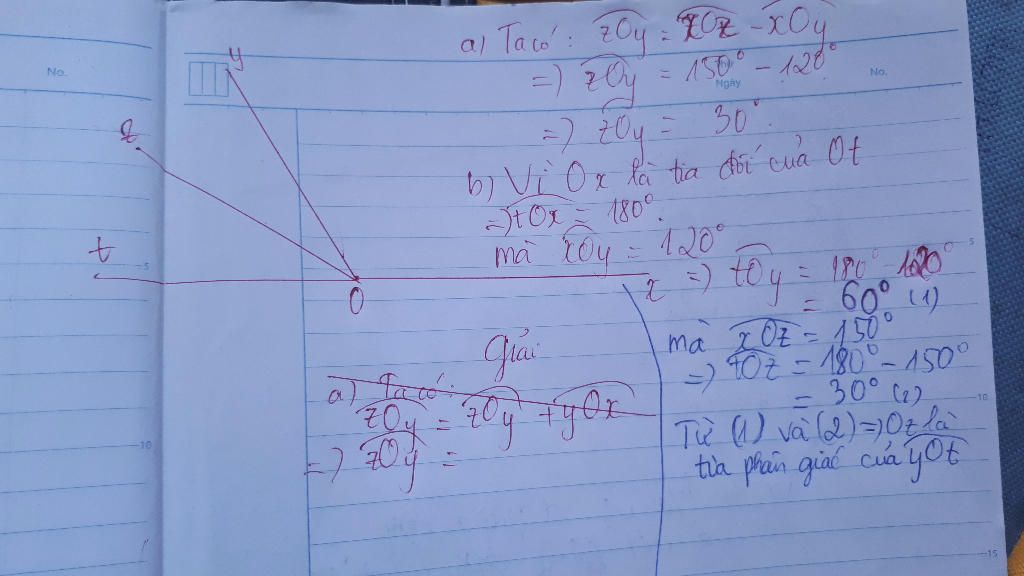 No.
Ngày
No.
y
z
t
O
x
a) Ta có: zOy = xOz - xOy
=) zOy = 150° - 120°
=) zOy = 30°.
b) Vì Ox là tia đối của Ot
=) tOx = 180°.
mà xOy = 120°
=) tOy = 180° - 120°
= 60° (1)
mà xOz = 150°
=) tOz = 180° - 150°
= 30° (2)
Từ (1) và (2) =) Oz là
tia phân giác của yOt
Giải
a) Ta có:
zOy = zOy + yOx
=) zOy =
5
10
5
10
15